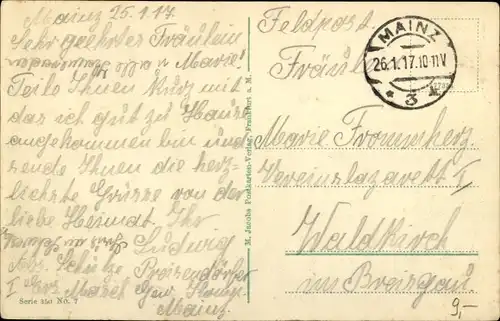 Mainz 25.1.17
Sehr geehrter Fräulein
Marie!
Teile Ihnen kurz mit
das ich gut zu Hause
angekommen bin und
sende Ihnen die herz-
lichste Grüsse von der
liebe Heimat. Ihr
Ludwig
Schütze
Mainz
Serie No. 7
M. Jacobs Postkarten-Verlag, Frankfurt a. M.
Feldpost
MAINZ
26.1.17.10-11V
* 3 *
Fräul
Marie Frommherz
Vereinslazarett I
Waldkirch
im Breisgau
9,-